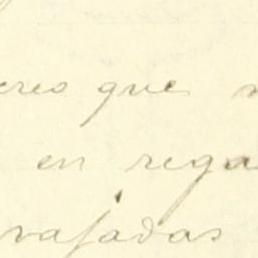 creo que
en rega
vajadas